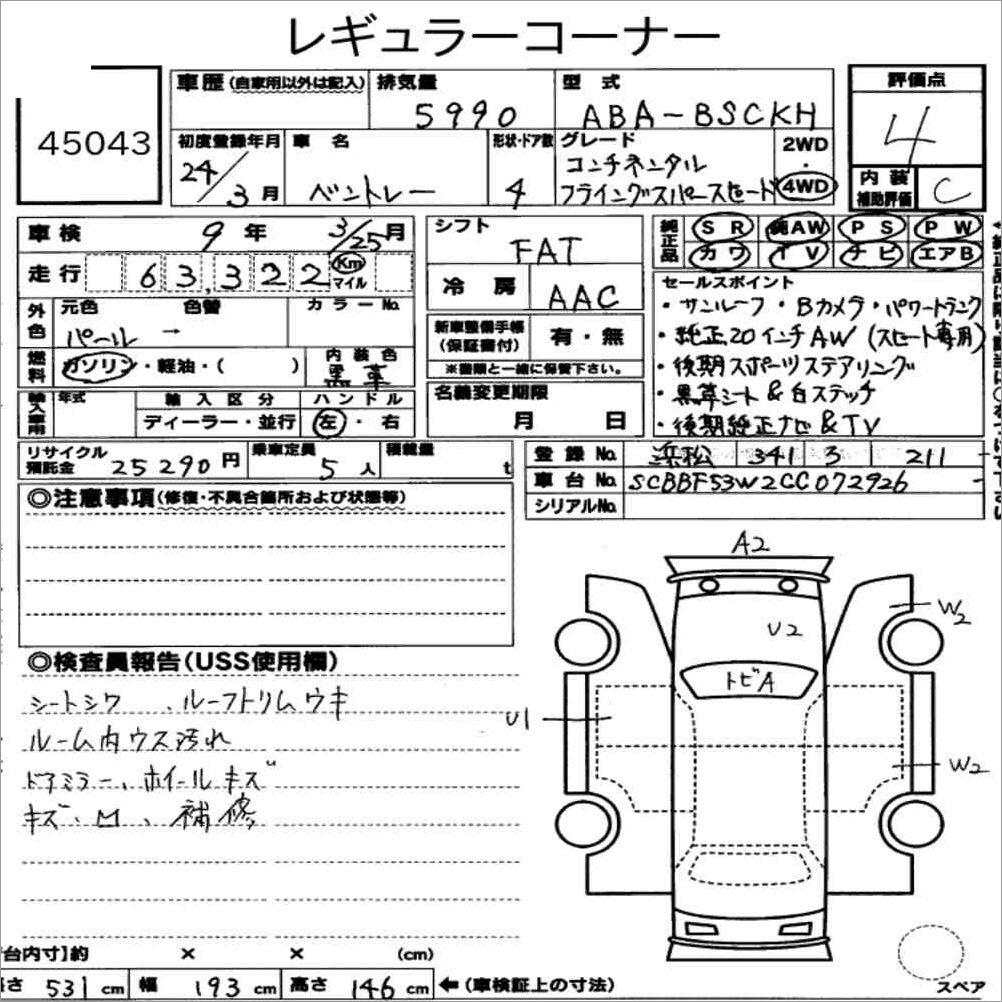 レギュラーコーナー
45043
車歴(自家用以外は記入) 排気量 型 式 評価点
5990 ABA-BSCKH 4
初度登録年月 車 名 形状・ドア数 グレード 2WD
・
24/3月 ベントレー 4 コンチネンタル
フライングスパースピード 4WD
内 装
補助評価 C
車 検 9 年 3/25 月 シフト FAT
純正品 SR 純AW PS PW
カワ TV ナビ エアB
走 行 63,322 Km マイル 冷 房 AAC
セールスポイント
・サンルーフ・Bカメラ・パワートランク
・純正20インチAW(スピード専用)
・後期スポーツステアリング
・黒革シート&白ステッチ
・後期純正ナビ&TV
外色 元色 色替 カラーNo.
パール →
新車整備手帳
(保証書付) 有・無
※書類と一緒に保管下さい。
燃料 ガソリン・軽油・( ) 内装色 黒革
名義変更期限
月 日
輸入車用 年式 輸入区分 ハンドル
ディーラー・並行 左・右
リサイクル
預託金 25290円 乗車定員 5人 積載量 t
登録No. 浜松 341 3 211
車台No. SCBBF53W2CC072926
シリアルNo.
◎注意事項(修復・不具合箇所および状態等)
◎検査員報告(USS使用欄)
シートシワ 、ルーフトリムウキ
ルーム内ウス汚れ
ドアミラー、ホイールキズ
キズ、凹、補修
A2
W2
U2
トビA
U1
W2
スペア
台内寸]約 × × (cm)
さ 531 cm 幅 193 cm 高さ 146 cm ←(車検証上の寸法)